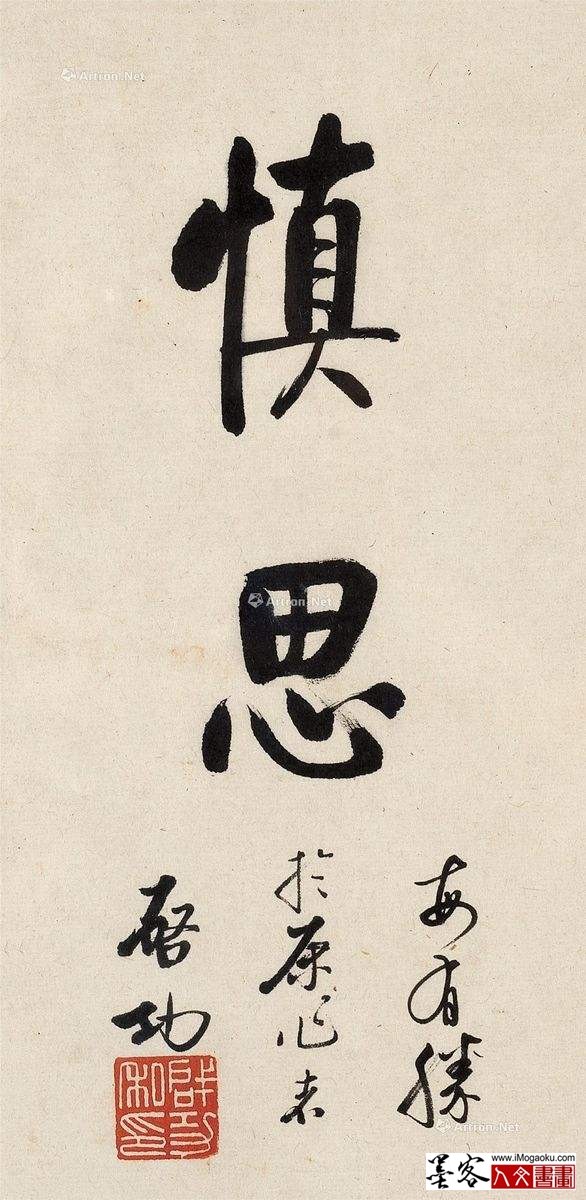 慎
思
每有勝
於原作者
啓功
啟功私印
Artron.Net
Artron.Net
Artron.Net
墨客
www.iMogaoku.com
人文書畫